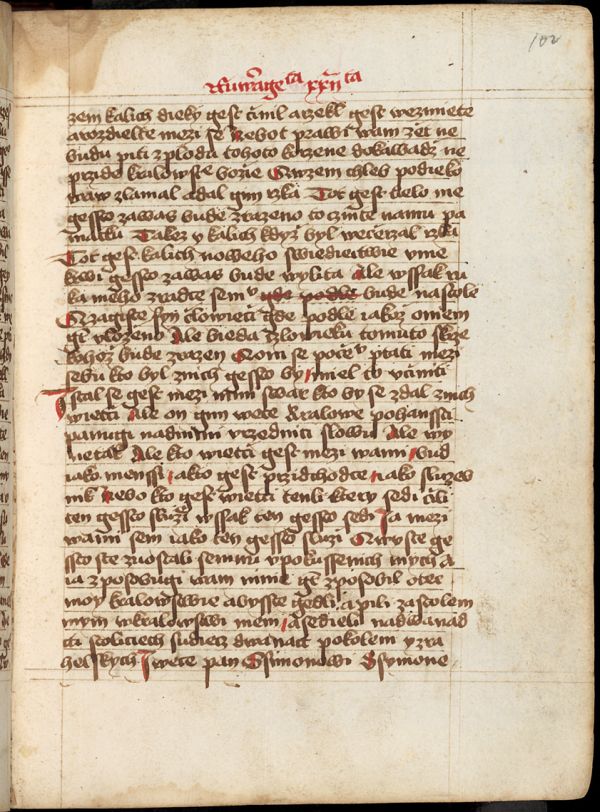 102
zem kalich dieky gest čynil a rzekl gest wezmiete
a rozdielte mezi se Nebot prawi wam zet ne
budu piti z plodu tohoto korzene dokawadz ne
przide kralowstwe bozie A wzem chleb podieko
waw zlamal a dal gym rzka Tot gest tielo me
gessto za was bude zrazeno to czinte na mu pa
matku Takez y kalich kdyz byl weczerzal rzka
Tot gest kalich noweho swiedectwie v me
krwi gessto za was bude wylita Ale wssak ru
ka meho zradce se mnu gde podle bude na stole
A zagiste syn člowieči gde podle iakoz o niem
gest vlozeno Ale bieda čzlowieku tomuto skrze
kohoz bude zrazen A oni se počechu ptati mezi
sebu kto byl z nich gessto by miel to včiniti
Stal se gest mezi nimi swar kto by se zdal z nich
wietči Ale on gym wece Kralowe pohanssti
panugi nad nimi vrzednici slowu Ale wy
ne tak Ale kto wietči gest mezi wami bud
iako menssi a kto gest przidchodce iako sluzeb
nik Nebo kto gest wietči ten li ktery sedi čili
ten gessto sluzi wssak ten gessto sedi Ja mezi
wami sem iako ten gessto sluzi A wy ste ge
ssto ste zuostali se mnu v pokussenich mych A
ia zposobugi wam mnie gest zposobil otec
moy kralowstwie abysste gedli a pili za stolem
mym w kralowstwi mem a sedieli na dwanad
cti stoliciech sudiecz dwanact pokolem yzra
helskych I wece pan Ssimonowi Ssymone